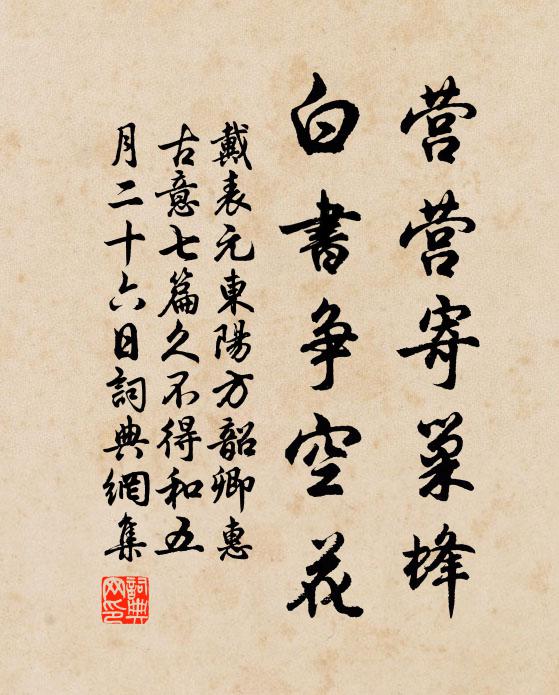 营营寄巢蜂
白書争空花
戴表元東陽方韶卿惠
古意七篇久不得和五
月二十六日詞典網集
詞典網印